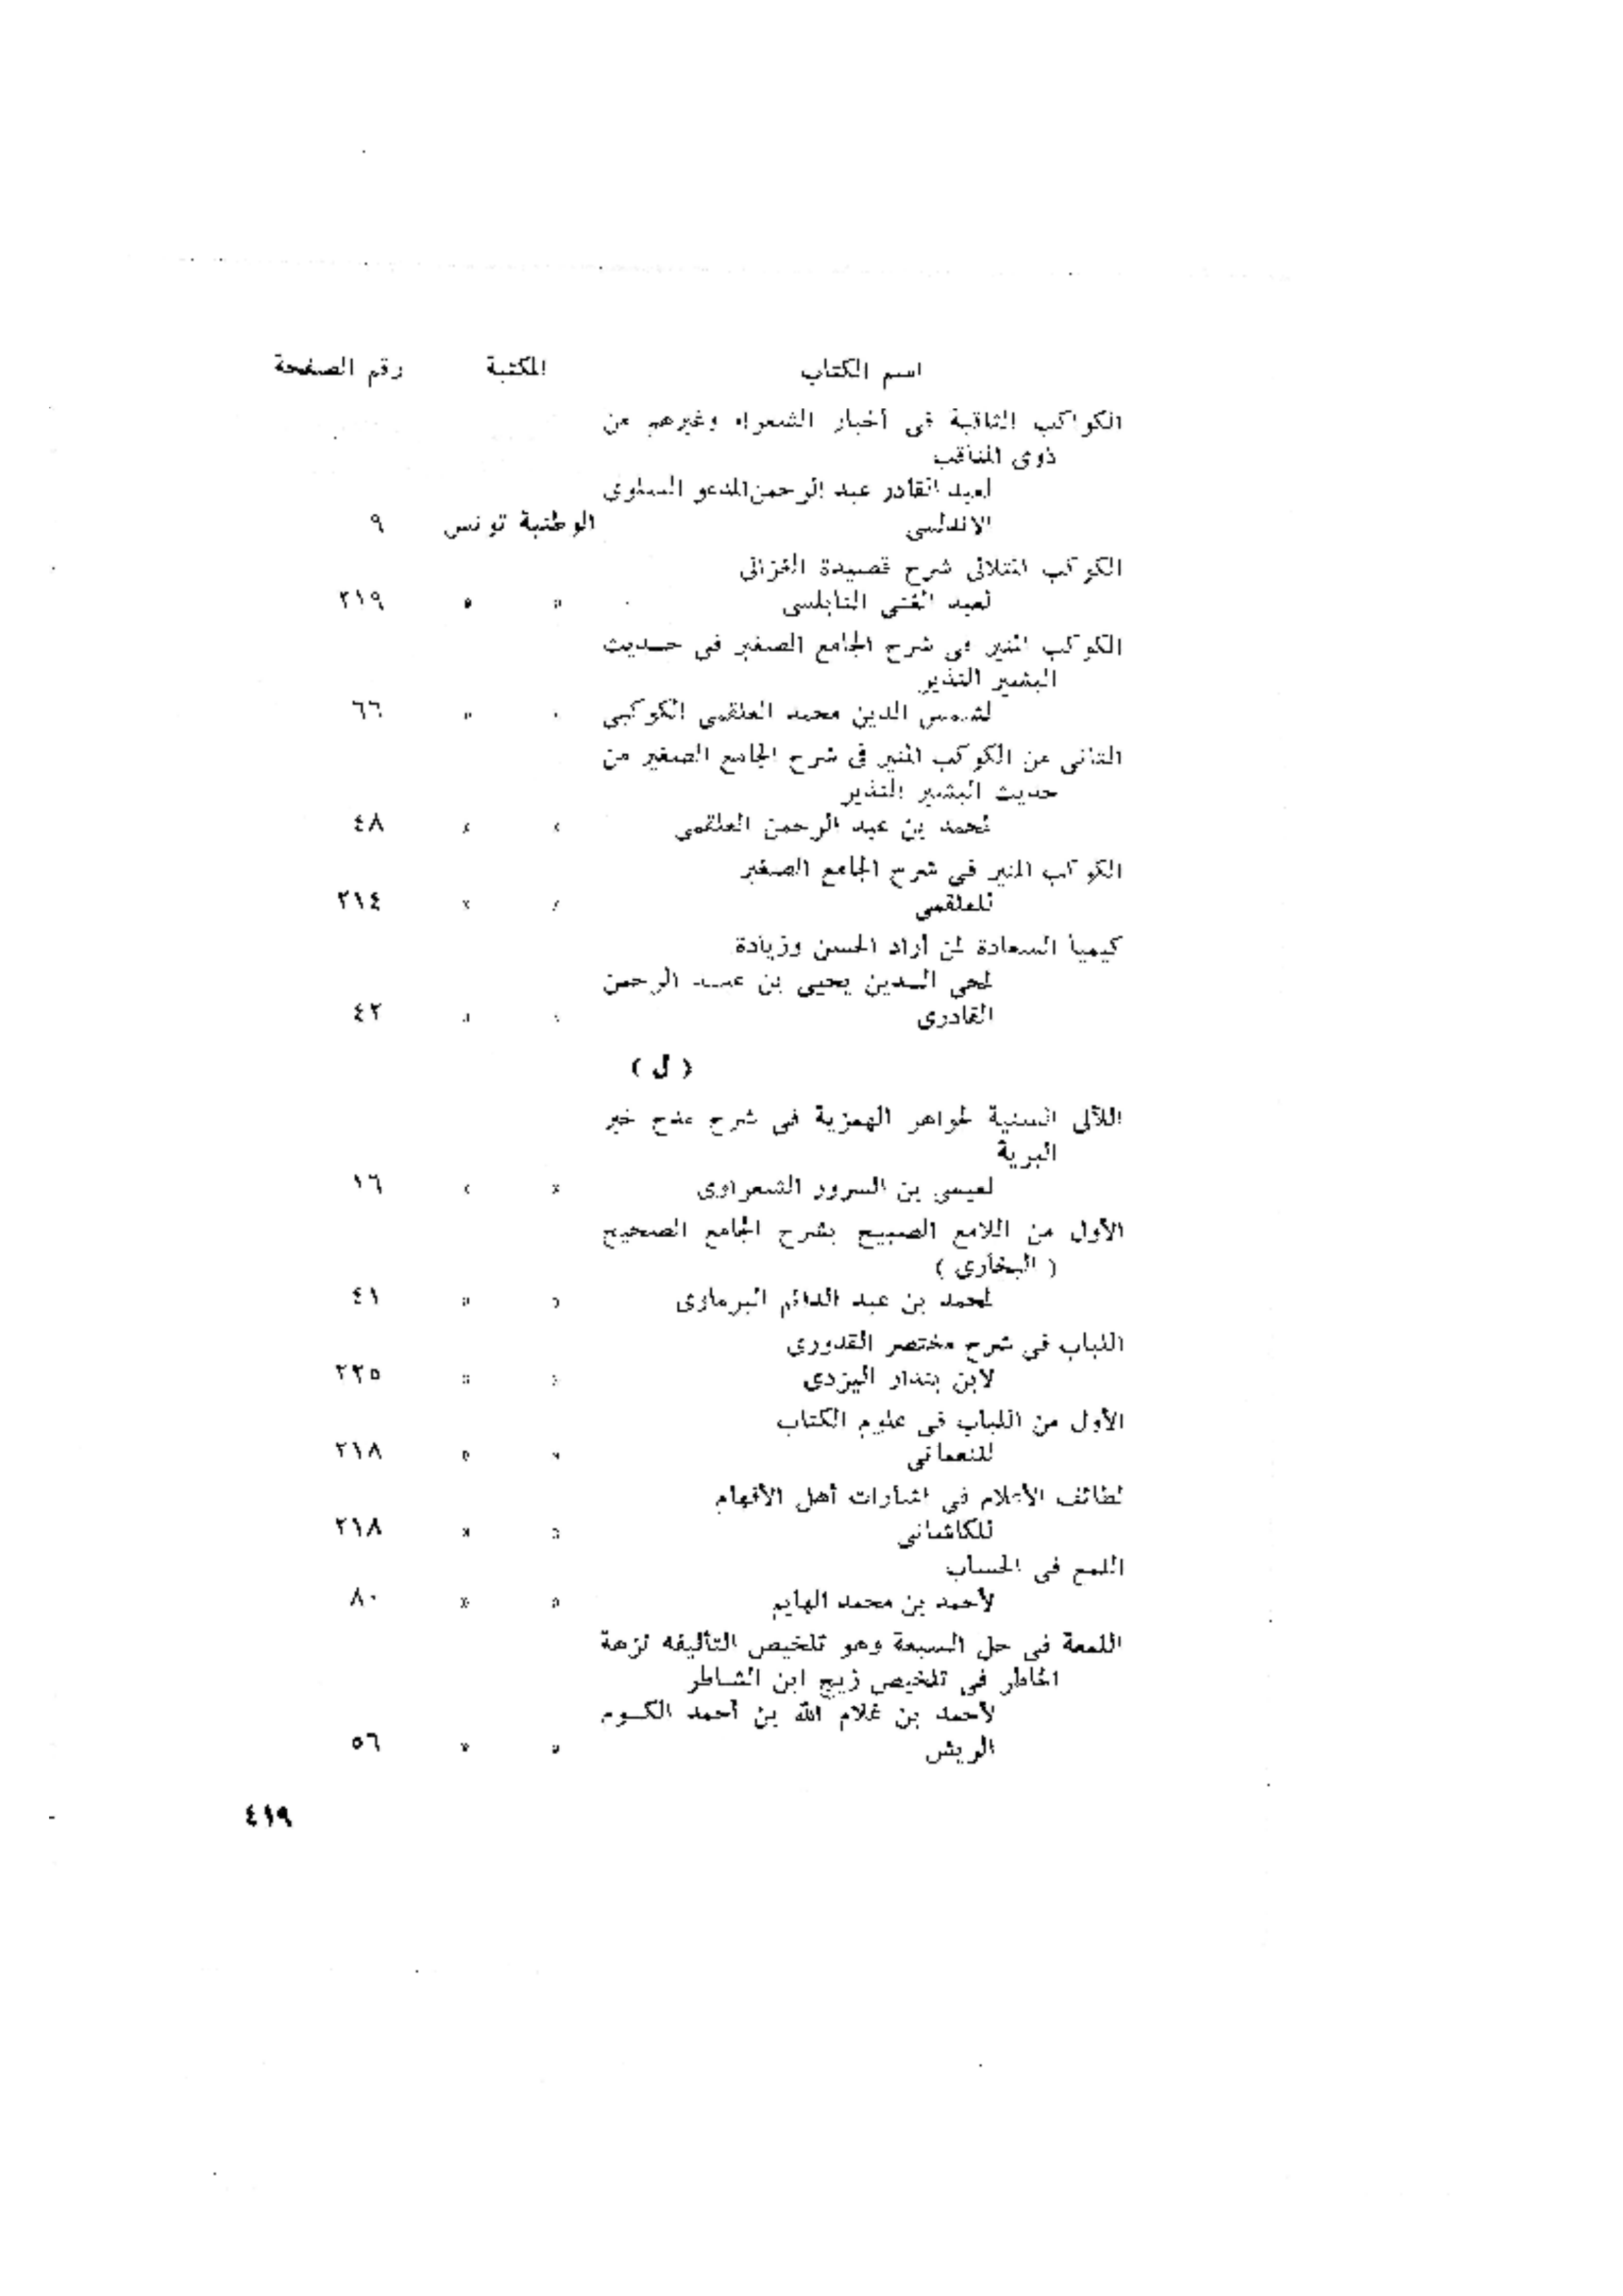 اسم الكتاب المكتبة رقم الصفحة
الكواكب الثاقبة فى أخبار الشعراء وغيرهم من
ذوى المناقب
لعبد القادر عبد الرحمن المدعو السلوى
الاندلسى الوطنية تونس ٩
الكوكب المتلالى شرح قصيدة الغزالى
لعبد الغنى النابلسى » » ٢١٩
الكوكب المنير فى شرح الجامع الصغير فى حديث
البشير النذير
لشمس الدين محمد العلقمى الكوكبى » » ٦٦
الثانى من الكوكب المنير فى شرح الجامع الصغير من
حديث البشير النذير
لمحمد بن عبد الرحمن العلقمى » » ٤٨
الكوكب المنير فى شرح الجامع الصغير
للعلقمى » » ٢١٤
كيميا السعادة لمن أراد الحسن وزيادة
لمحى الدين يحيى بن عبد الرحمن
القادرى » » ٤٢
( ل )
اللآلى السنية لجواهر الهمزية فى شرح مدح خير
البرية
لعيسى بن السرور الشعراوى » » ١٦
الأول من اللامع الصبيح بشرح الجامع الصحيح
( البخارى )
لمحمد بن عبد الدائم البرماوى » » ٤١
اللباب فى شرح مختصر القدورى
لابن بندار اليزدى » » ٢٢٥
الأول من اللباب فى علوم الكتاب
للنعمانى » » ٢١٨
لطائف الأعلام فى اشارات أهل الأفهام
للكاشانى » » ٢١٨
اللمع فى الحساب
لأحمد بن محمد الهايم » » ٨٠
اللمعة فى حل السبعة وهو تلخيص التأليفه نزهة
الخاطر فى تلخيص زيج ابن الشاطر
لأحمد بن غلام الله بن أحمد الكوم
الريش » » ٥٦
٤١٩